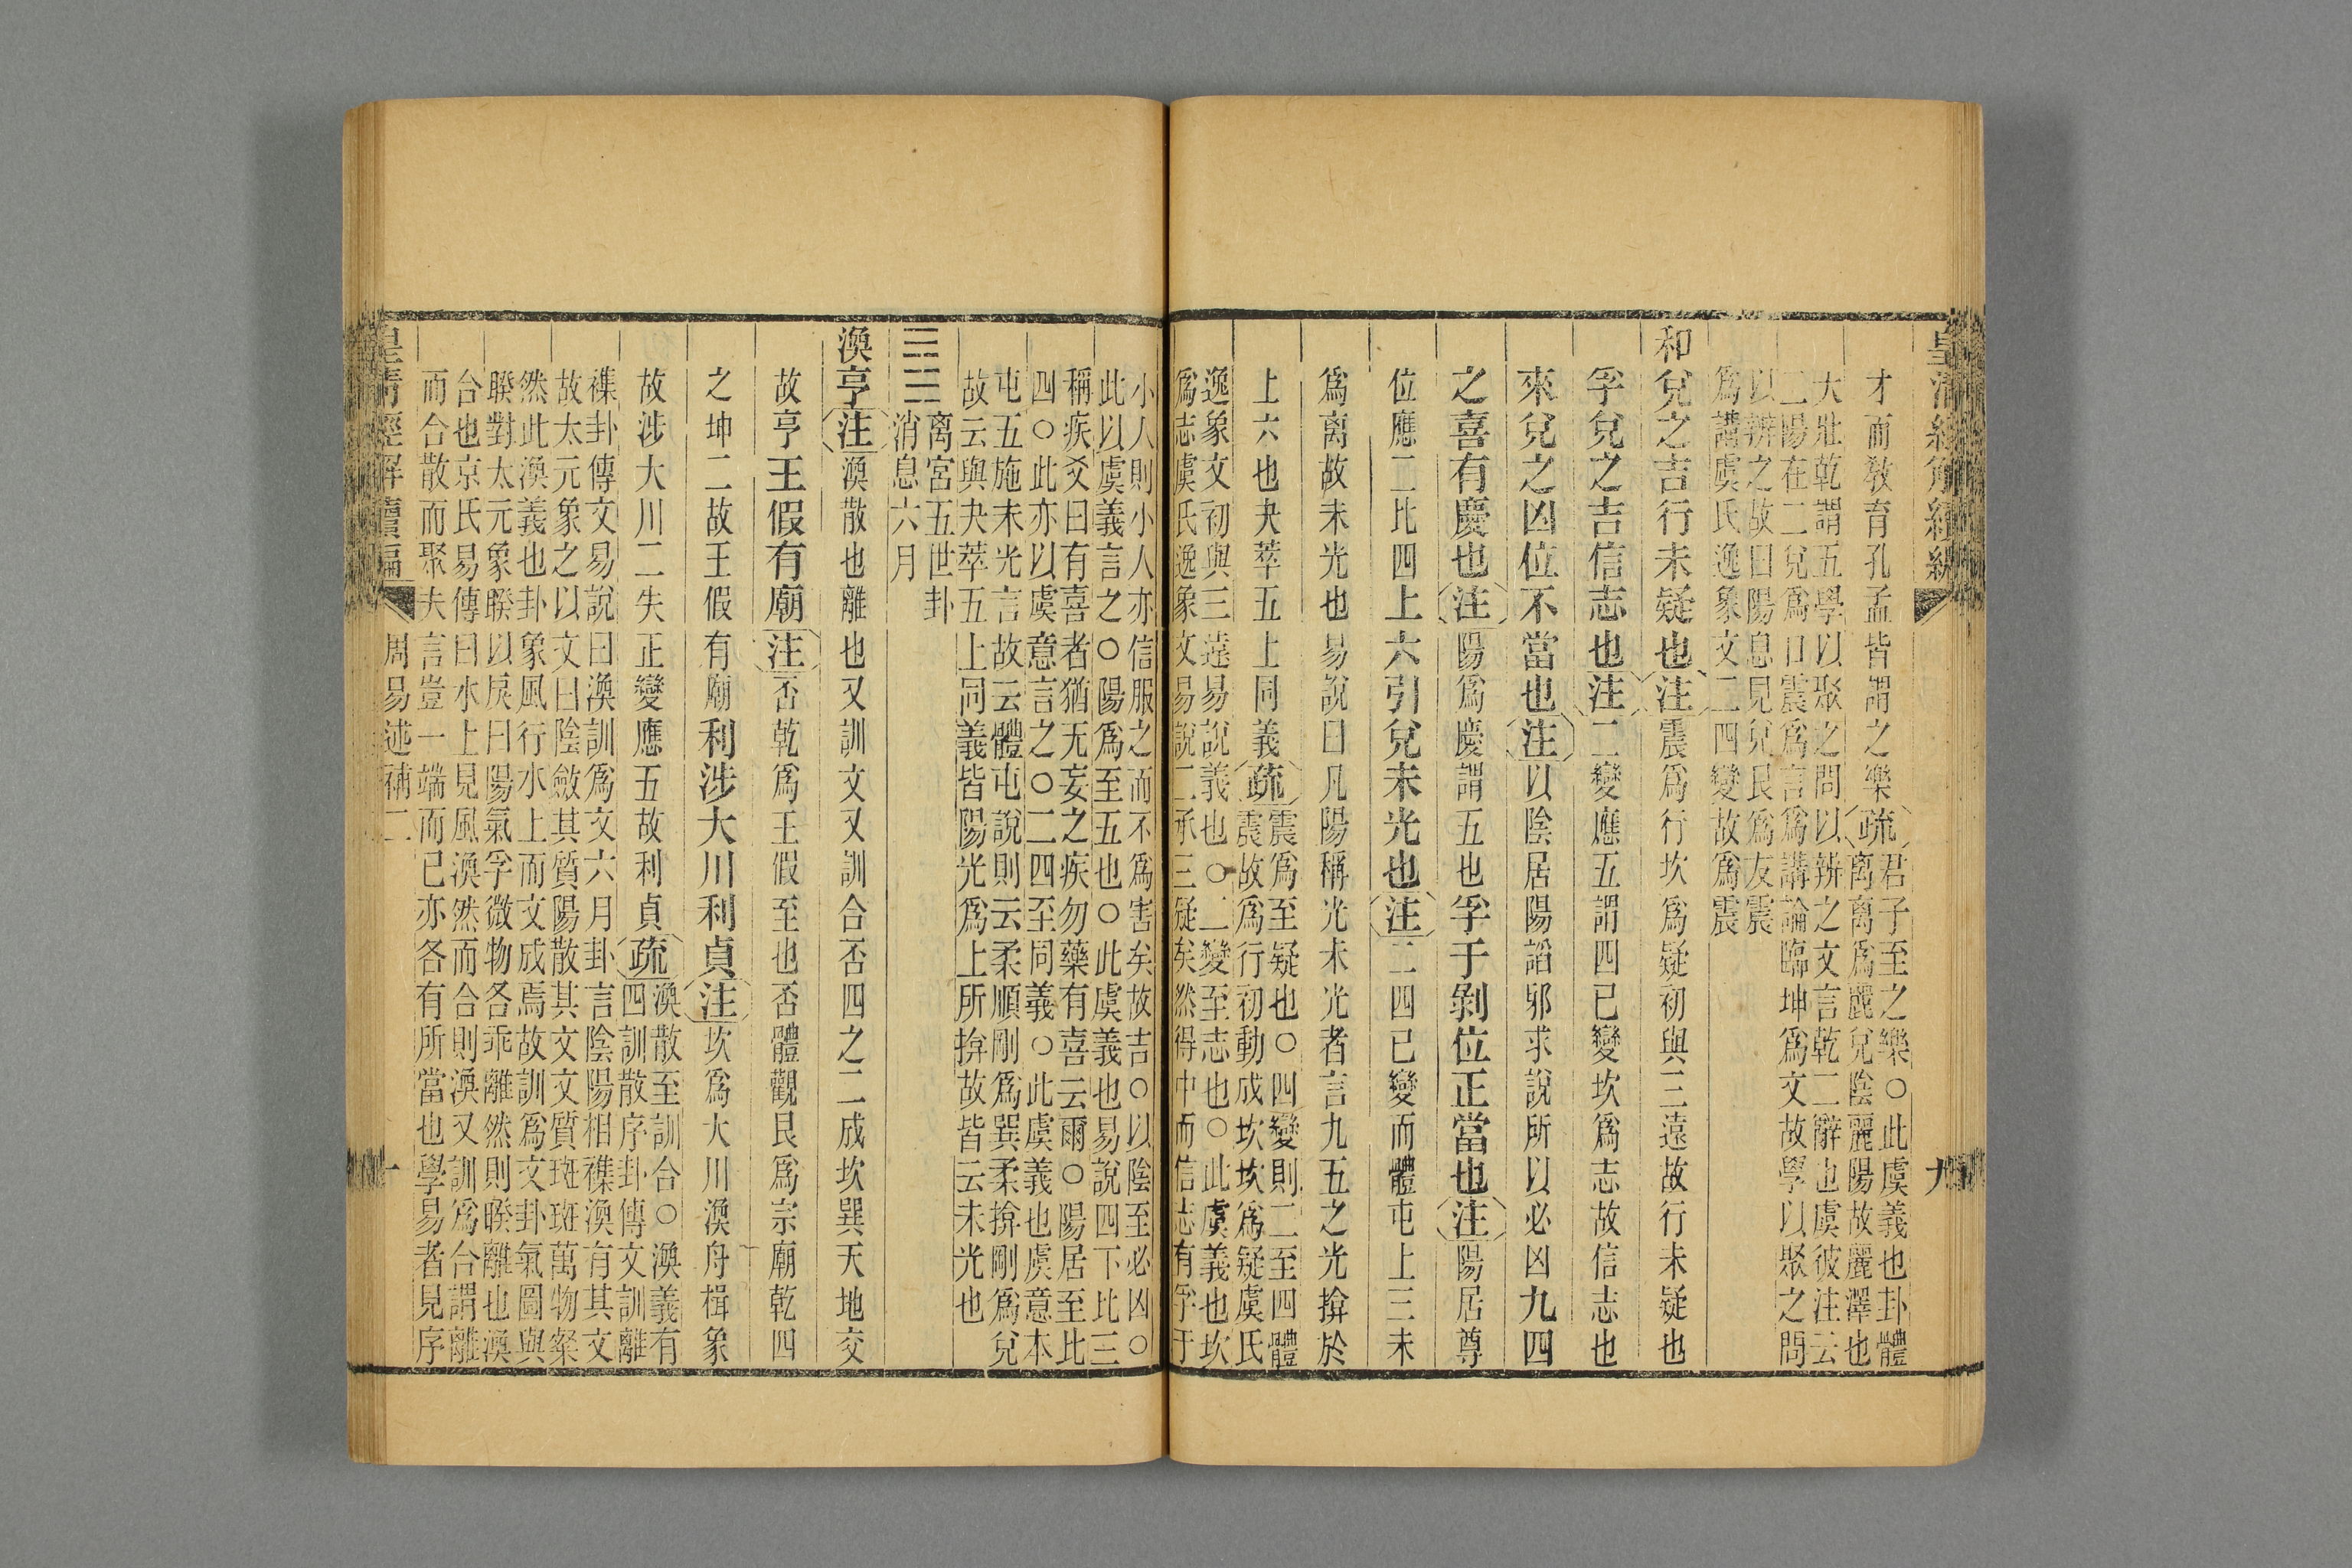 才而敎育孔孟皆謂之樂疏君子至之樂○此虞義也卦體
离离爲麗兌陰麗陽故麗澤也
大壯乾謂五學以聚之問以辨之文言乾二辭也虞彼注云
二陽在二兌爲口震爲言爲講論臨坤爲文故學以聚之問
以辨之故曰陽息見兌艮爲友震
爲講虞氏逸象文二四變故爲震
和兌之吉行未疑也注震爲行坎爲疑初與三遠故行未疑也
孚兌之吉信志也注二變應五謂四已變坎爲志故信志也
來兌之凶位不當也注以陰居陽諂邪求說所以必凶九四
之喜有慶也注陽爲慶謂五也孚于剝位正當也注陽居尊
位應二比四上六引兌未光也注二四已變而體屯上三未
爲离故未光也易說曰凡陽稱光未光者言九五之光揜於
上六也夬萃五上同義疏震爲至疑也○四變則二至四體
震故爲行初動成坎坎爲疑虞氏
逸象文初與三遠易說義也○二變至志也○此虞義也坎
爲志虞氏逸象文易說二承三疑矣然得中而信志有孚于
小人則小人亦信服之而不爲害矣故吉○以陰至必凶○
此以虞義言之○陽爲至五也○此虞義也易說四下比三
稱疾爻曰有喜者猶无妄之疾勿藥有喜云爾○陽居至比
四○此亦以虞意言之○二四至同義○此虞義也虞意本
屯五施未光言故云體屯說則云柔順剛爲巽柔揜剛爲兌
故云與夬萃五上同義皆陽光爲上所揜故皆云未光也
离宮五世卦
消息六月
渙亨注渙散也離也又訓文又訓合否四之二成坎巽天地交
故亨王假有廟注否乾爲王假至也否體觀艮爲宗廟乾四
之坤二故王假有廟利涉大川利貞注坎爲大川渙舟楫象
故涉大川二失正變應五故利貞疏渙散至訓合○渙義有
四訓散序卦傳文訓離
襍卦傳文易說曰渙訓爲文六月卦言陰陽相襍渙有其文
故太元象之以文曰陰斂其質陽散其文文質斑斑萬物粲
然此渙義也卦象風行水上而文成焉故訓爲文卦氣圖與
睽對太元象睽以戾曰陽氣孚微物各乖離然則睽離也渙
合也京氏易傳曰水上見風渙然而合則渙又訓爲合謂離
而合散而聚夫言豈一端而已亦各有所當也學易者見序
皇淸經解續編 周易述補二 十